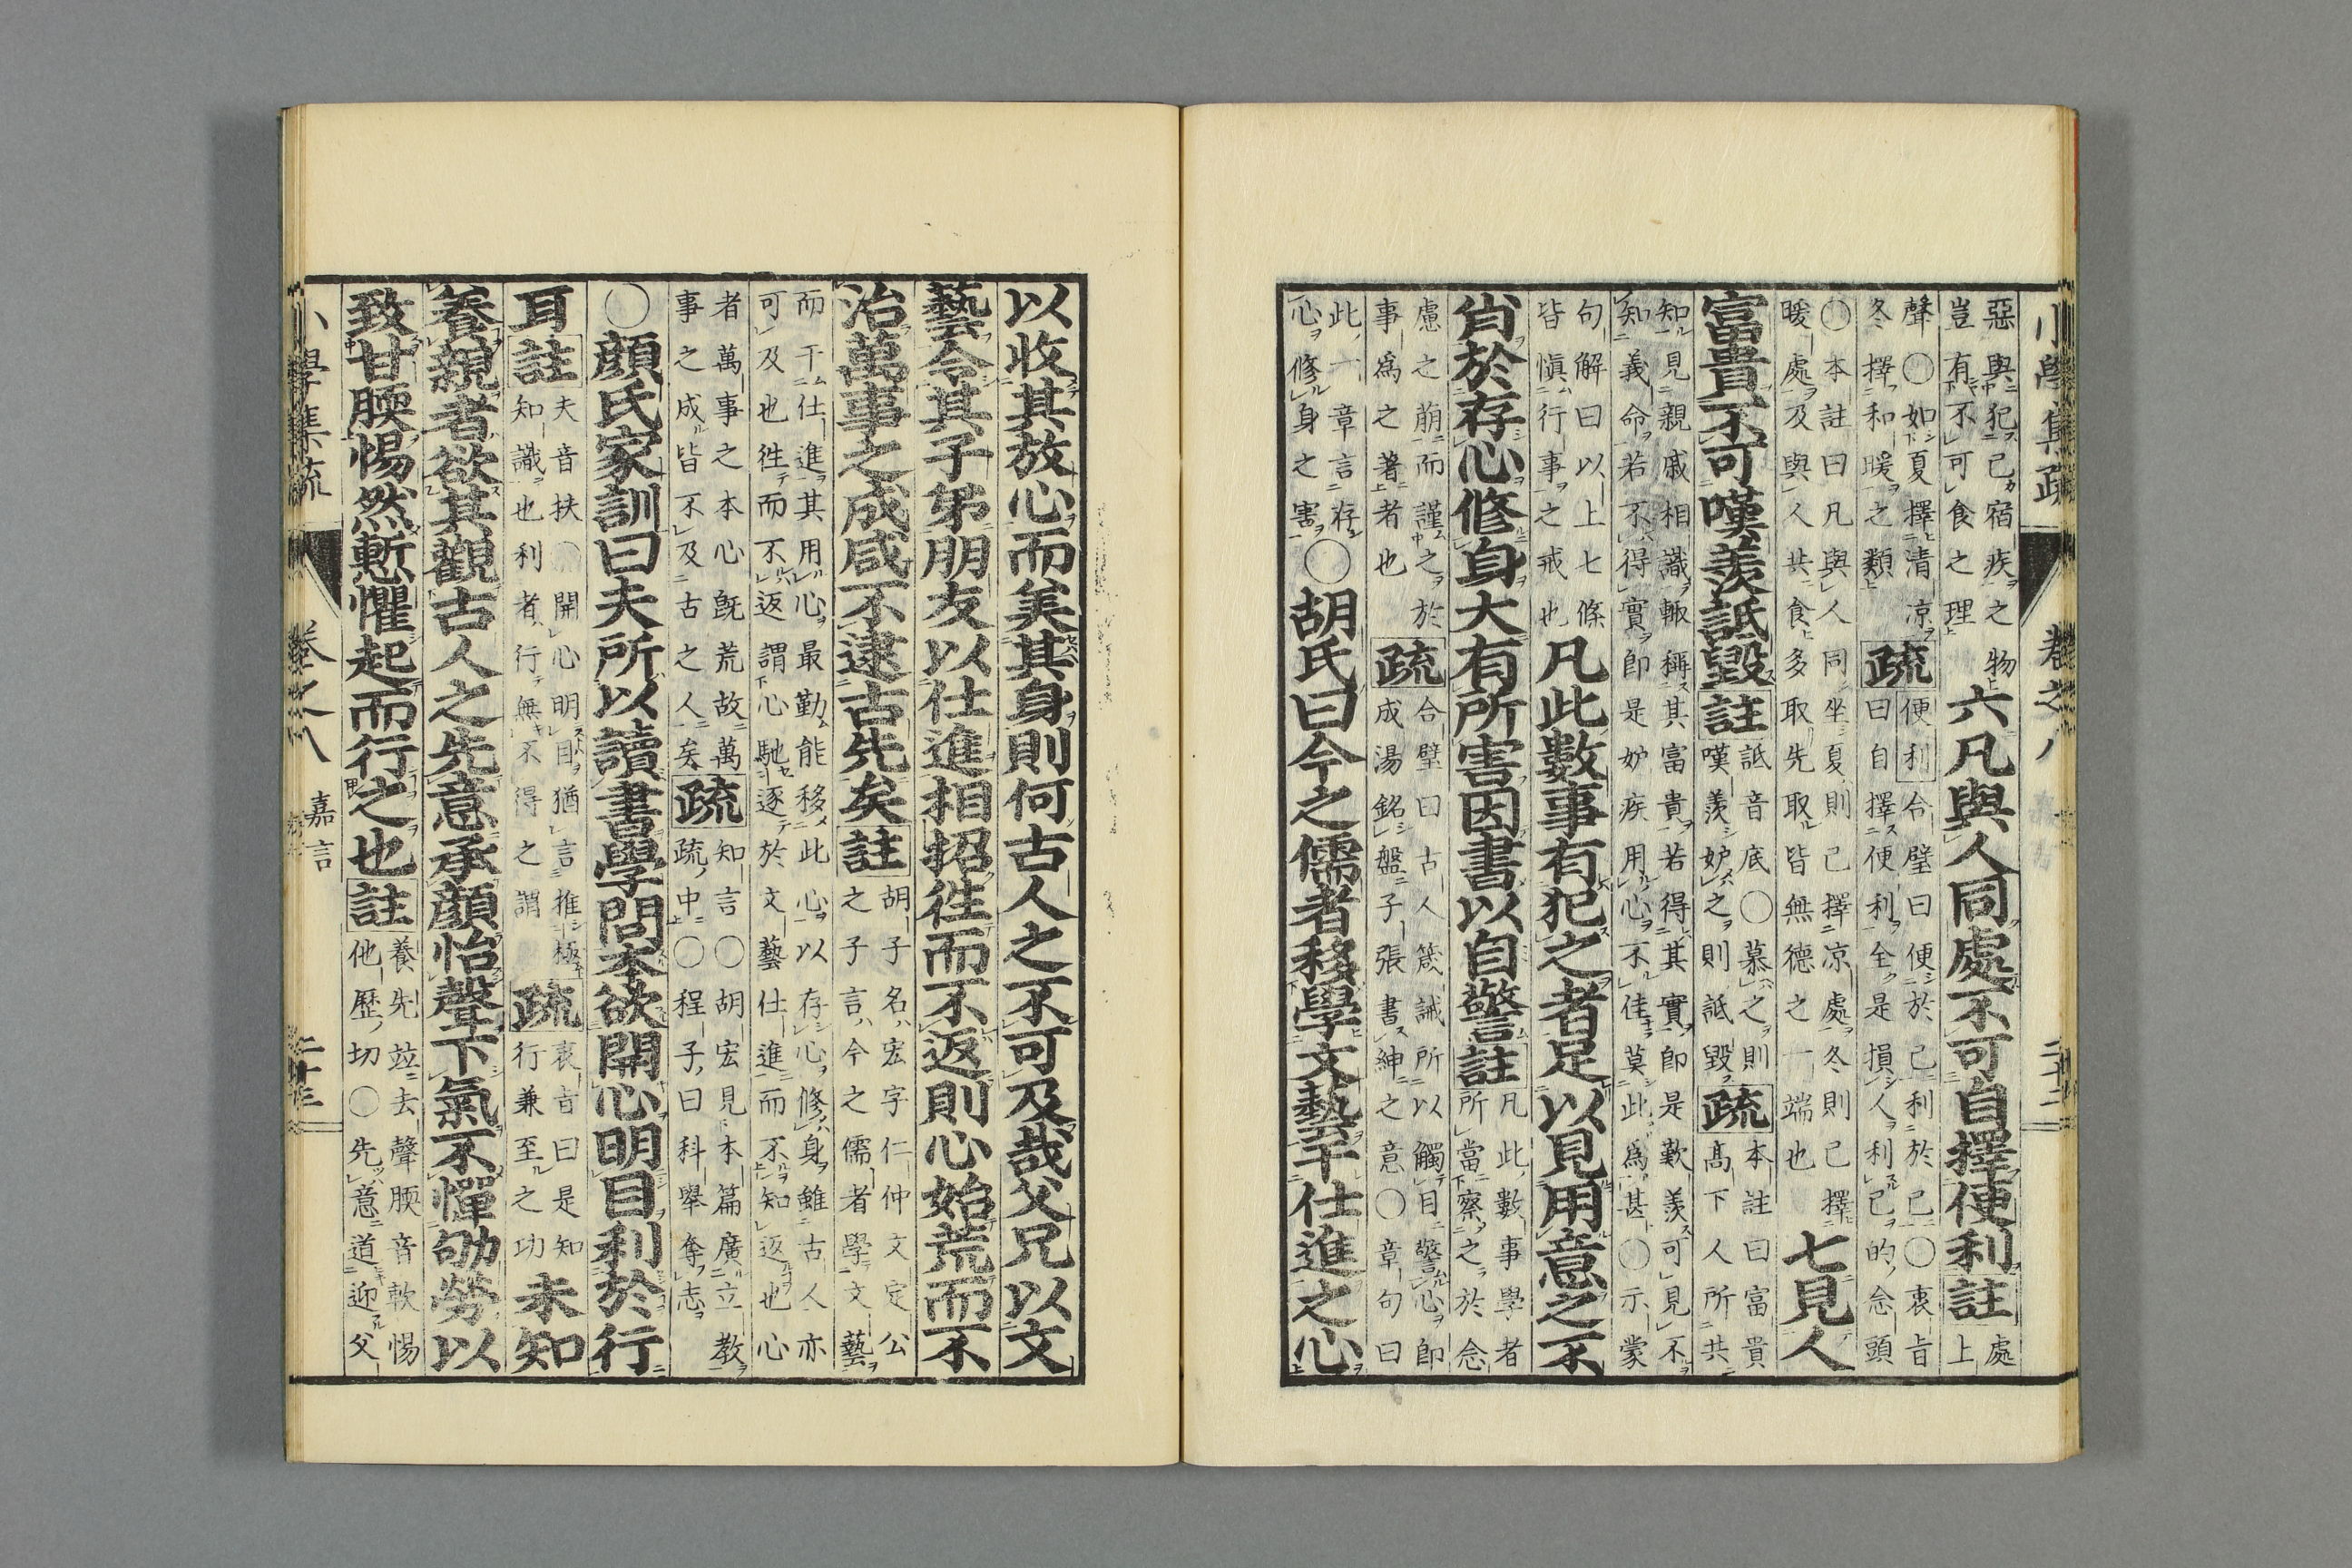 小學集疏 卷之八 二十二
惡與犯己宿疾之物
豈有不可食之理
六凡與人同處不可自擇便利註
處
上
聲○如夏擇清凉
冬擇和暖之類
疏
便利合璧曰便於己利於己○衷旨
曰自擇便利全是損人利己的念頭
○本註曰凡與人同坐夏則己擇凉處冬則己擇
暖處及與人共食多取先取皆無德之一端也
七見人
富貴不可嘆羨詆毀註
詆音底○慕之則
嘆羨妒之則詆毀
疏
本註曰富貴
高下人所共
知見親戚相識輙稱其富貴若得其實即是歎羨可見不
知義命若不得實即是妒疾用心不佳莫此爲甚○示蒙
句解曰以上七條
皆愼行事之戒也
凡此數事有犯之者足以見用意之不
肖於存心修身大有所害因書以自警註
凡此數事學者
所當察之於念
慮之萠而謹之於
事爲之著者也
疏
合璧曰古人箴誡所以觸目警心即
成湯銘盤子張書紳之意○章句曰
此一章言存
心修身之害
○胡氏曰今之儒者移學文藝干仕進之心
以收其放心而美其身則何古人之不可及哉父兄以文
藝令其子弟朋友以仕進相招徃而不返則心始荒而不
治萬事之成咸不逮古先矣註
胡子名宏字仁仲文定公
之子言今之儒者學文藝
而干仕進其用心最勤能移此心以存心修身雖古人亦
可及也徃而不返謂心馳逐於文藝仕進而不知返也心
者萬事之本心旣荒故萬
事之成皆不及古之人矣
疏
知言○胡宏見本篇廣立教
疏中○程子曰科舉奪志
○顔氏家訓曰夫所以讀書學問本欲開心明目利於行
耳註
夫音扶○開心明目猶言推極
知識也利者行無不得之謂
疏
衷旨曰是知
行兼至之功
未知
養親者欲其觀古人之先意承顔怡聲下氣不憚劬勞以
致甘腝惕然慙懼起而行之也註
養先竝去聲腝音軟惕
他歷切○先意道迎父
小學集疏 卷之八 嘉言 二十三